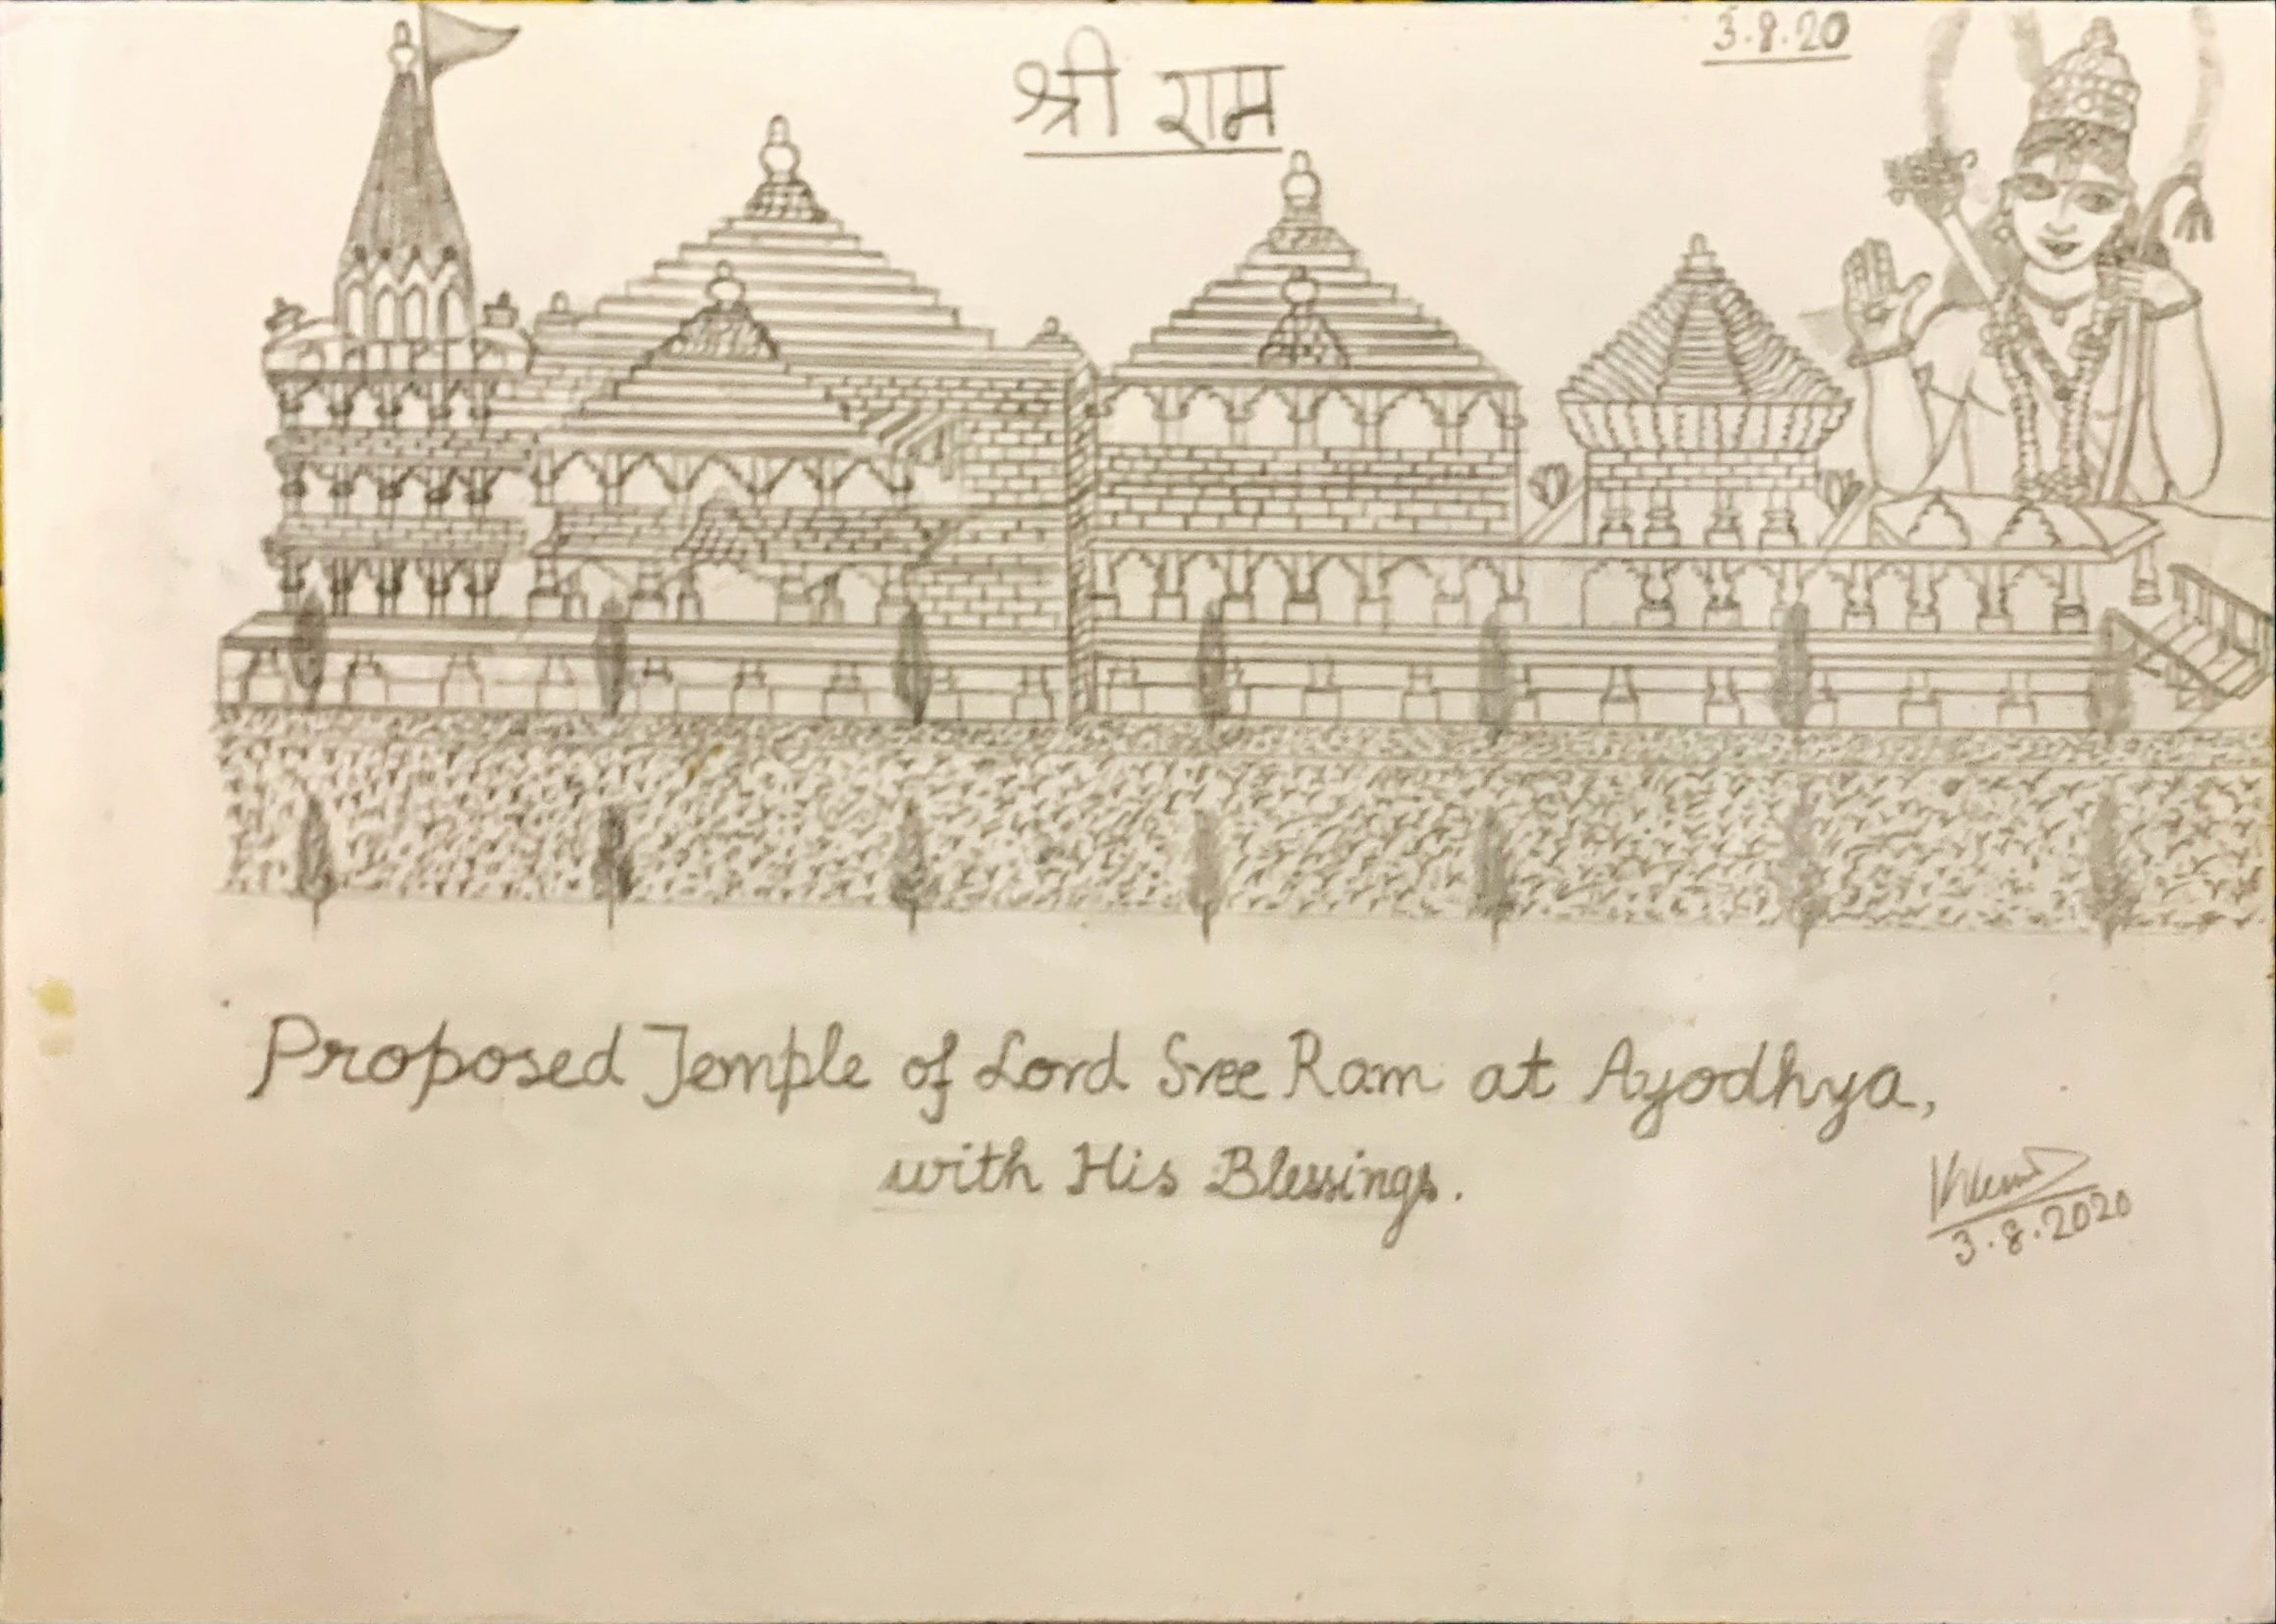 3.8.20
श्री राम
Proposed Temple of Lord Sree Ram at Ayodhya,
with His Blessings.
3.8.2020